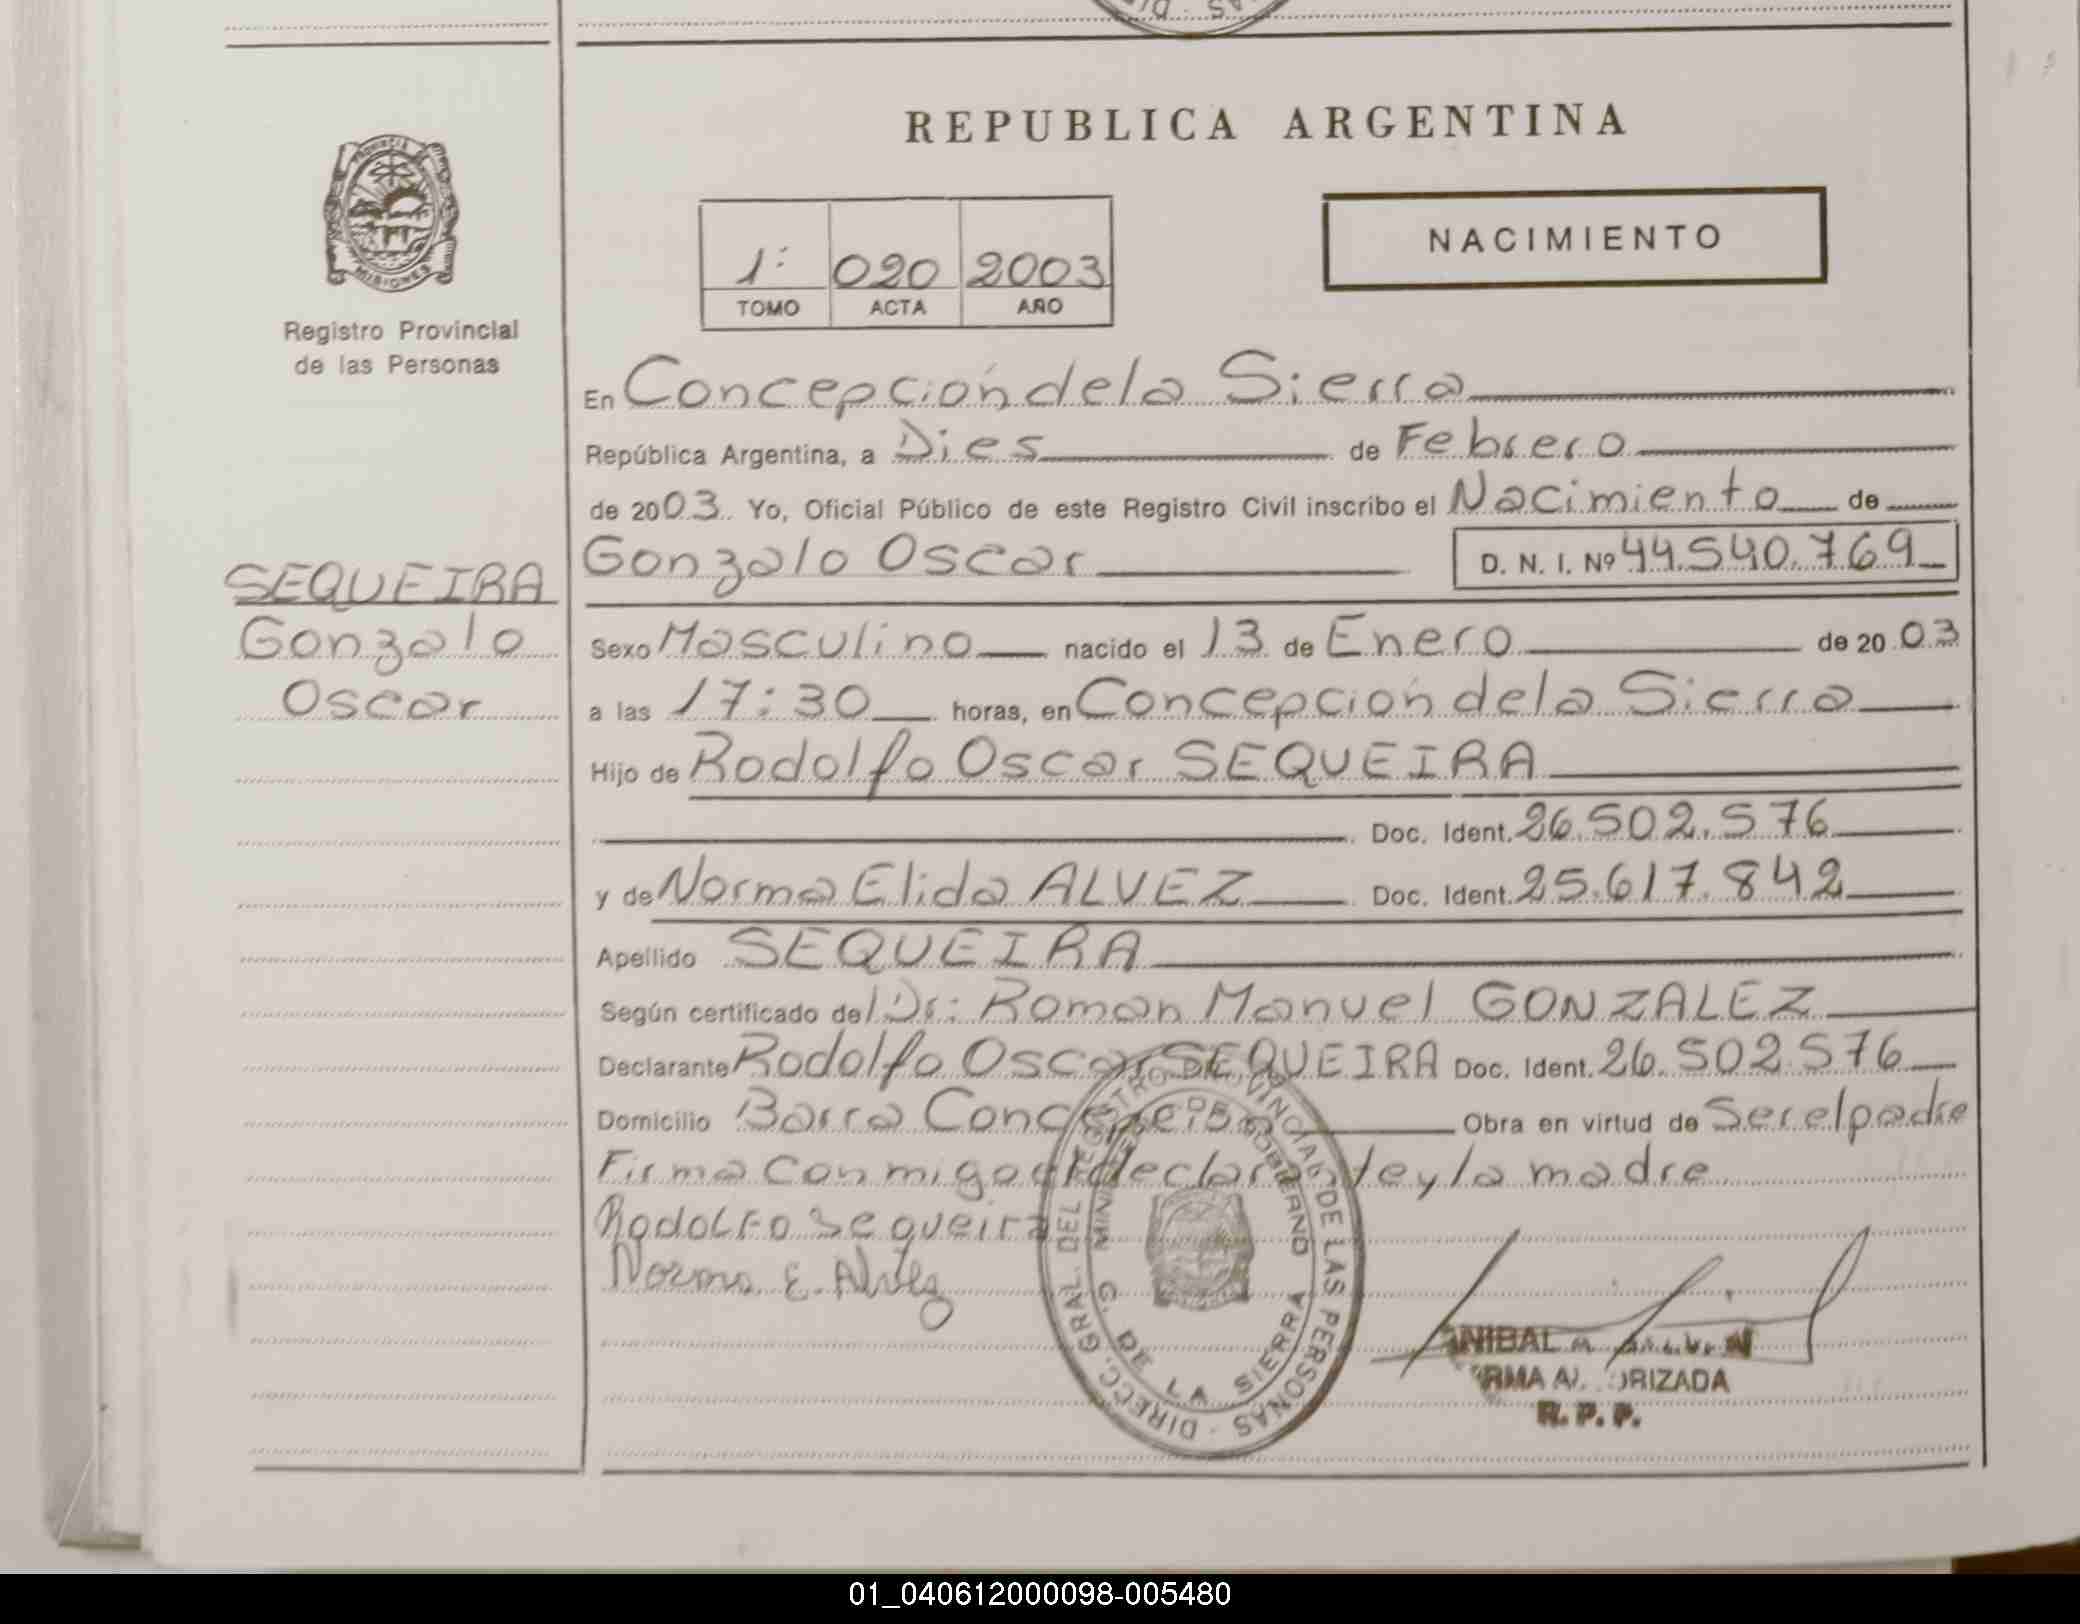 REPUBLICA ARGENTINA
PROVINCIA DE
MISIONES
Registro Provincial
de las Personas
1º 020 2003
TOMO ACTA AÑO
NACIMIENTO
En Concepción de la Sierra
República Argentina, a Dies de Febrero
de 2003. Yo, Oficial Público de este Registro Civil inscribo el Nacimiento de
SEQUEIRA
Gonzalo
Oscar
Gonzalo Oscar D. N. I. Nº 44.540.769
Sexo Masculino nacido el 13 de Enero de 2003
a las 17:30 horas, en Concepción de la Sierra
Hijo de Rodolfo Oscar SEQUEIRA
Doc. Ident. 26.502.576
y de Norma Elida ALVEZ Doc. Ident. 25.617.842
Apellido SEQUEIRA
Según certificado del Dr: Roman Manuel GONZALEZ
Declarante Rodolfo Oscar SEQUEIRA Doc. Ident. 26.502.576
Domicilio Barra Concepción Obra en virtud de Ser el padre
Firma con migo el declarante y la madre
Rodolfo Sequeira
Norma E. Alvez
DIRECC. GRAL. DEL REGISTRO PROVINCIAL DE LAS PERSONAS
MINISTERIO DE GOBIERNO
C. DE LA SIERRA
ANIBAL
R. P. P.
01_040612000098-005480